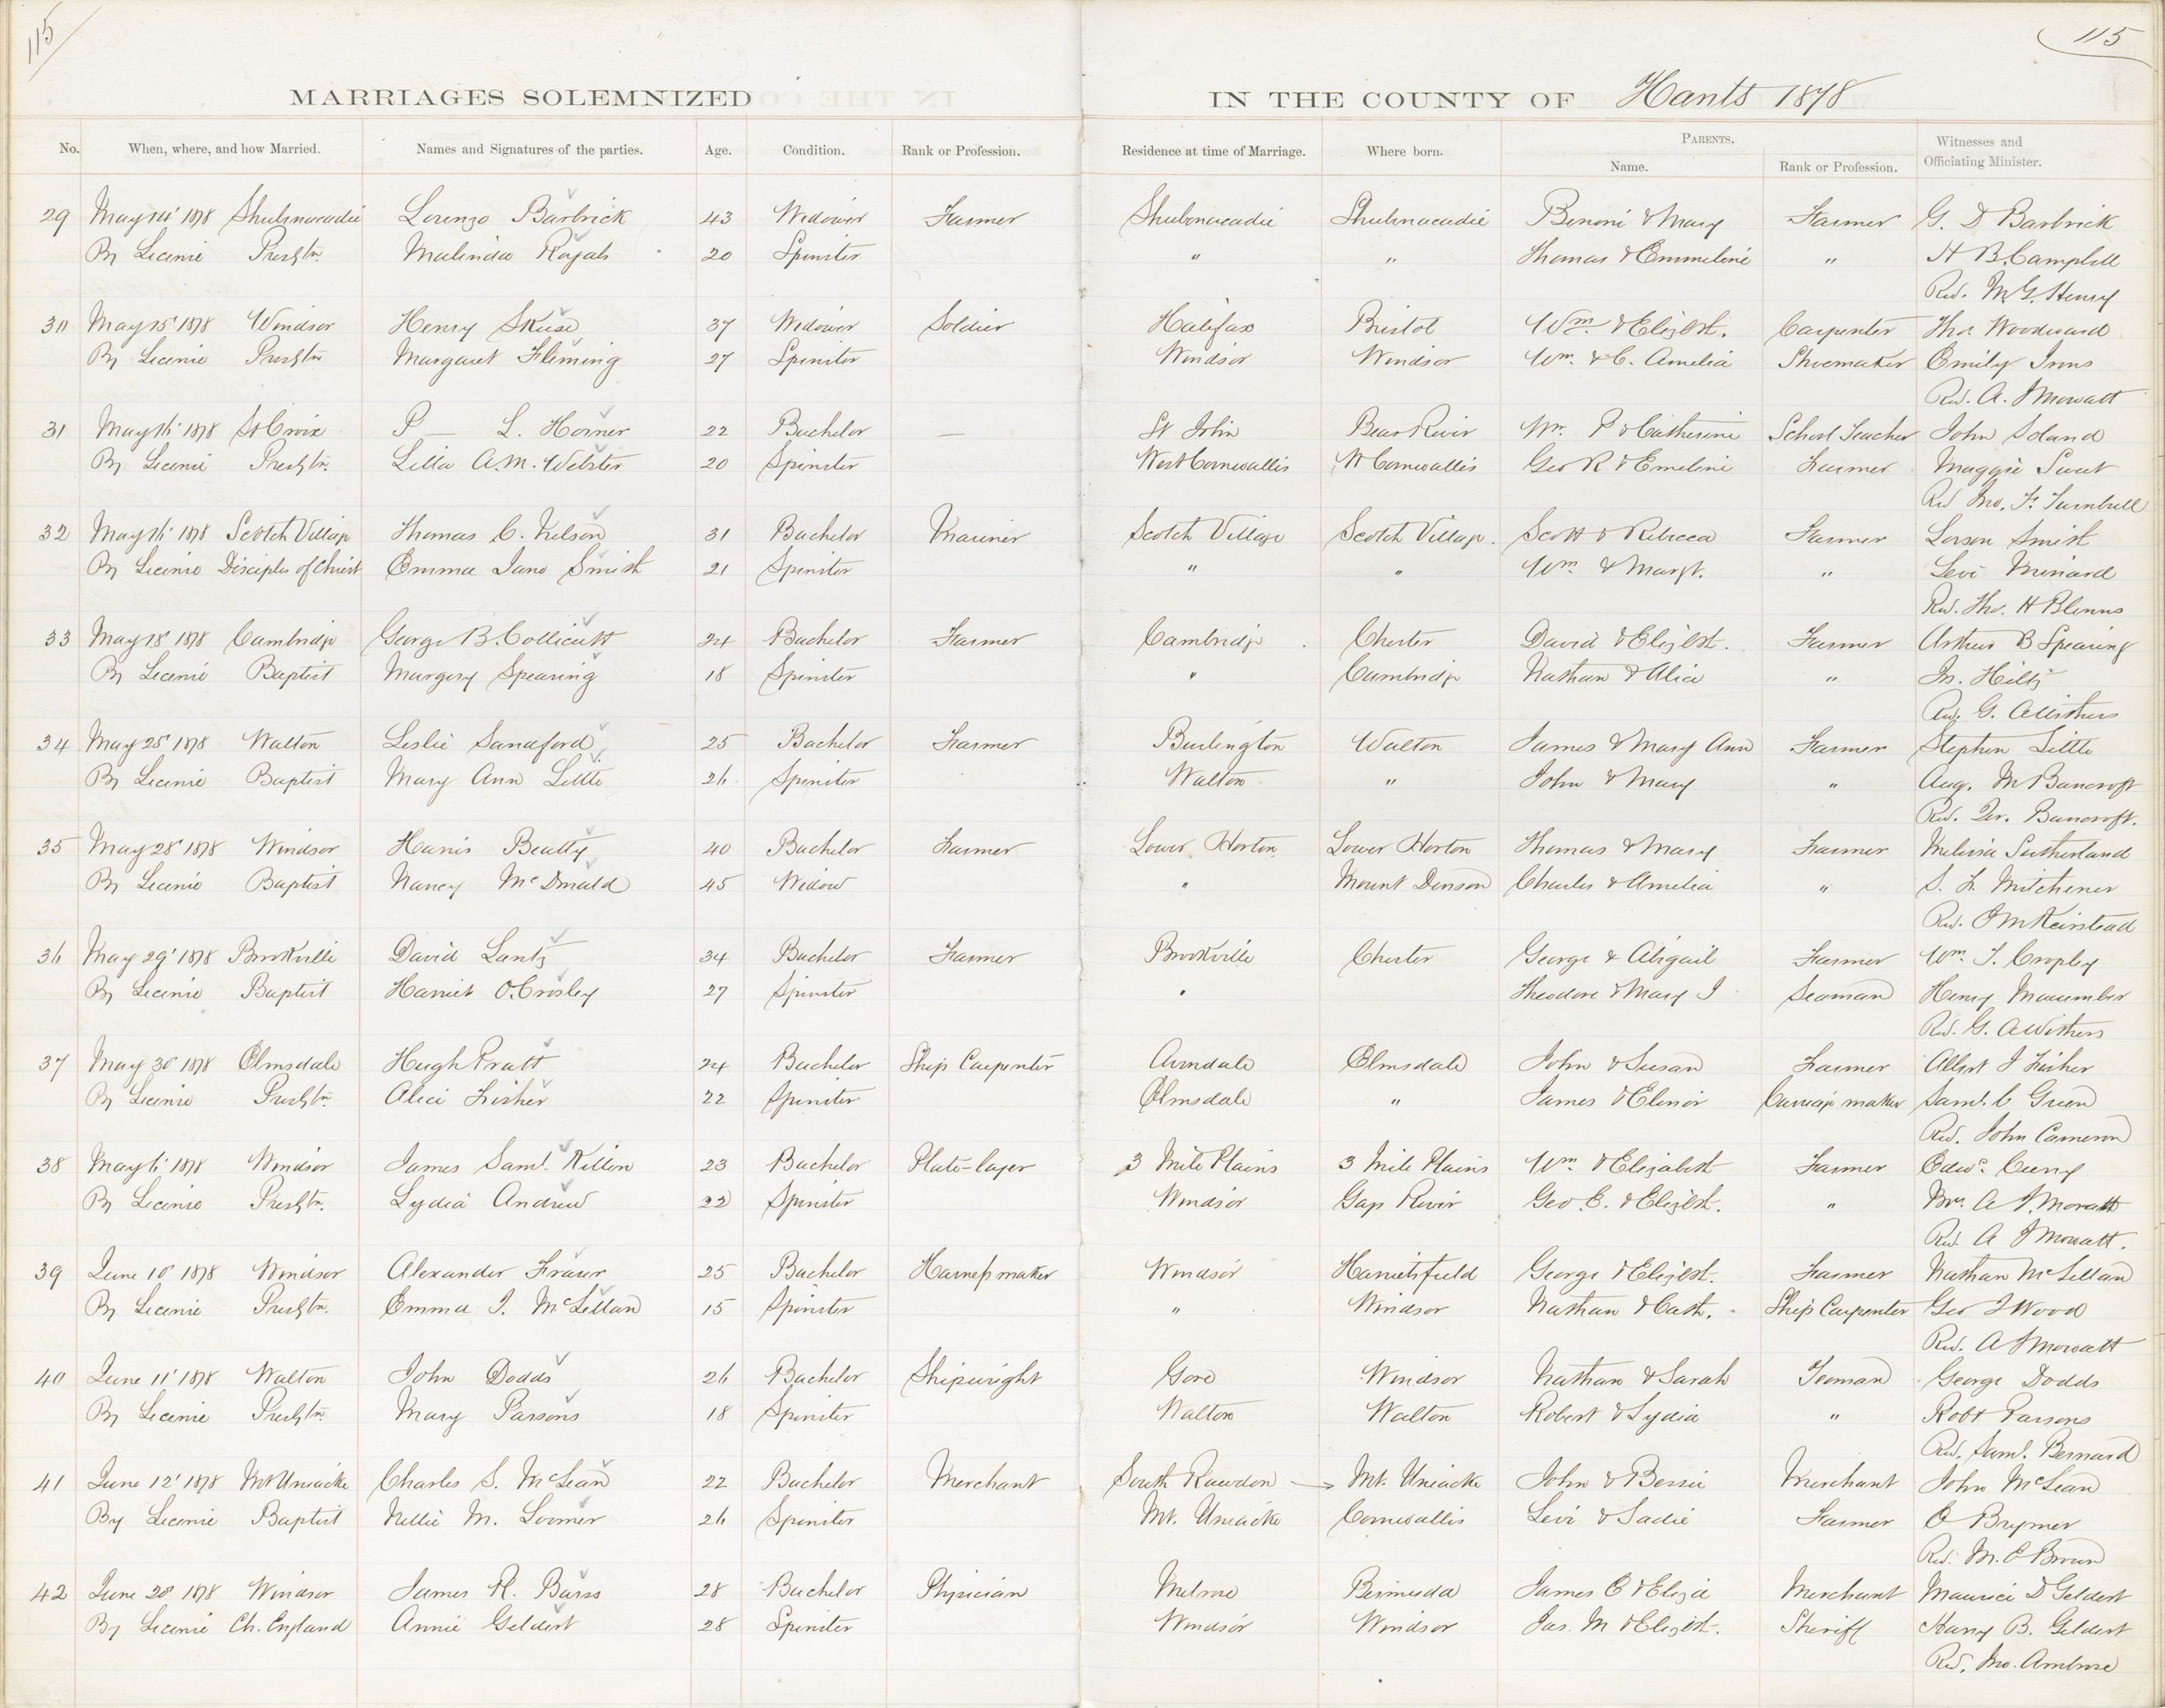 115
115
MARRIAGES SOLEMNIZED IN THE COUNTY OF Hants 1878
No. When, where, and how Married. Names and Signatures of the parties. Age. Condition. Rank or Profession. Residence at time of Marriage. Where born. PARENTS. Name. Rank or Profession. Witnesses and Officiating Minister.
29 May 14' 1878 Shubenacadie Lorenzo Barbrick 43 Widower Farmer Shubenacadie Shubenacadie Benoni & Mary Farmer G. D Barbrick
By License Presbtn. Malinda Royals 20 Spinster " " Thomas & Emmeline " H B. Campbell
Rev. M. G. Henry
30 May 15' 1878 Windsor Henry Skuse 37 Widower Soldier Halifax Bristol Wm. & Elizbth. Carpenter Thos Woodward
By License Presbtn Margaret Fleming 27 Spinster Windsor Windsor Wm. & C. Amelia Shoemaker Emily Inns
Rev. A. J Mowatt
31 May 16' 1878 St Croix P — L. Horner 22 Bachelor — St John Bear River Wm. P & Catherine School Teacher John Soland
By License Presbtn. Lilla A. M. Webster 20 Spinster West Cornwallis W Cornwallis Geo R & Emeline Farmer Maggie Sweet
Rev Jno. F. Turnbull
32 May 16' 1878 Scotch Village Thomas C. Nelson 31 Bachelor Mariner Scotch Village Scotch Village. Scott & Rebecca Farmer Smith
By License Disciples of Christ Emma Jane Smith 21 Spinster " " Wm & Margt. " Levi Minard
Rev. Tho. H Blenus
33 May 18' 1878 Cambridge George B. Collicutt 24 Bachelor Farmer Cambridge Chester David & Elizbth. Farmer Arthur B Spearing
By License Baptist Margery Spearing 18 Spinster " Cambridge Nathan & Alice " Jn. Hiltz
Rev. G. A Withers
34 May 25' 1878 Walton Leslie Sandford 25 Bachelor Farmer Burlington Walton James & Mary Ann Farmer Stephen Little
By License Baptist Mary Ann Little 26 Spinster Walton " John & Mary " Aug. M Bancroft
Rev. Bancroft.
35 May 28' 1878 Windsor Harris Beatty 40 Bachelor Farmer Lower Horton Lower Horton Thomas & Mary Farmer Melissa Sutherland
By License Baptist Nancy McDonald 45 Widow " Mount Denson Charles & Amelia " S. L. Mitchener
Rev. Keirstead
36 May 29' 1878 Brookville David Lantz 34 Bachelor Farmer Brookville Chester George & Abigail Farmer Wm. T. Cropley
By License Baptist Harriet O. Crosley 27 Spinster " Theodore & Mary J Seaman Henry Macumber
Rev. G. A Withers
37 May 30' 1878 Elmsdale Hugh Pratt 24 Bachelor Ship Carpenter Avondale Elmsdale John & Susan Farmer Albert J Fisher
By License Presbtn. Alice Fisher 22 Spinster Elmsdale " James & Elinor Carriage maker Saml. C Green
Rev. John Cameron
38 May 6' 1878 Windsor James Saml. Killen 23 Bachelor Plate-layer 3 Mile Plains 3 Mile Plains Wm. & Elizabeth Farmer Edwd. Curry
By License Presbtn. Lydia Andrew 22 Spinster Windsor Gap River Geo. E. & Elizbth. " Mrs. A J. Mowatt
Rev. A J Mowatt.
39 June 10' 1878 Windsor Alexander Fraser 25 Bachelor Harness maker Windsor Harrietsfield George & Elizbth. Farmer Nathan McLellan
By License Presbtn. Emma J. McLellan 15 Spinster " Windsor Nathan & Cath. Ship Carpenter Geo J Wood
Rev. A J Mowatt
40 June 11' 1878 Walton John Dodds 26 Bachelor Shipwright Gore Windsor Nathan & Sarah Yeoman George Dodds
By License Presbtn Mary Parsons 18 Spinster Walton Walton Robert & Lydia " Robt Parsons
Rev. Saml. Bernard
41 June 12' 1878 Mt Uniacke Charles S. McLean 22 Bachelor Merchant South Rawdon Mt. Uniacke John & Bessie Merchant John McLean
By License Baptist Nellie M. Loomer 26 Spinster Mt. Uniacke Cornwallis Levi & Sadie Farmer O Brymer
Rev. M. P Brown
42 June 20' 1878 Windsor James R. Barss 28 Bachelor Physician Melrose Bermuda James E & Eliza Merchant Maurice D Geldert
By License Ch. England Annie Geldert 28 Spinster Windsor Windsor Jas. M & Elizbth. Sheriff Harry B. Geldert
Rev. Jno. Ambrose